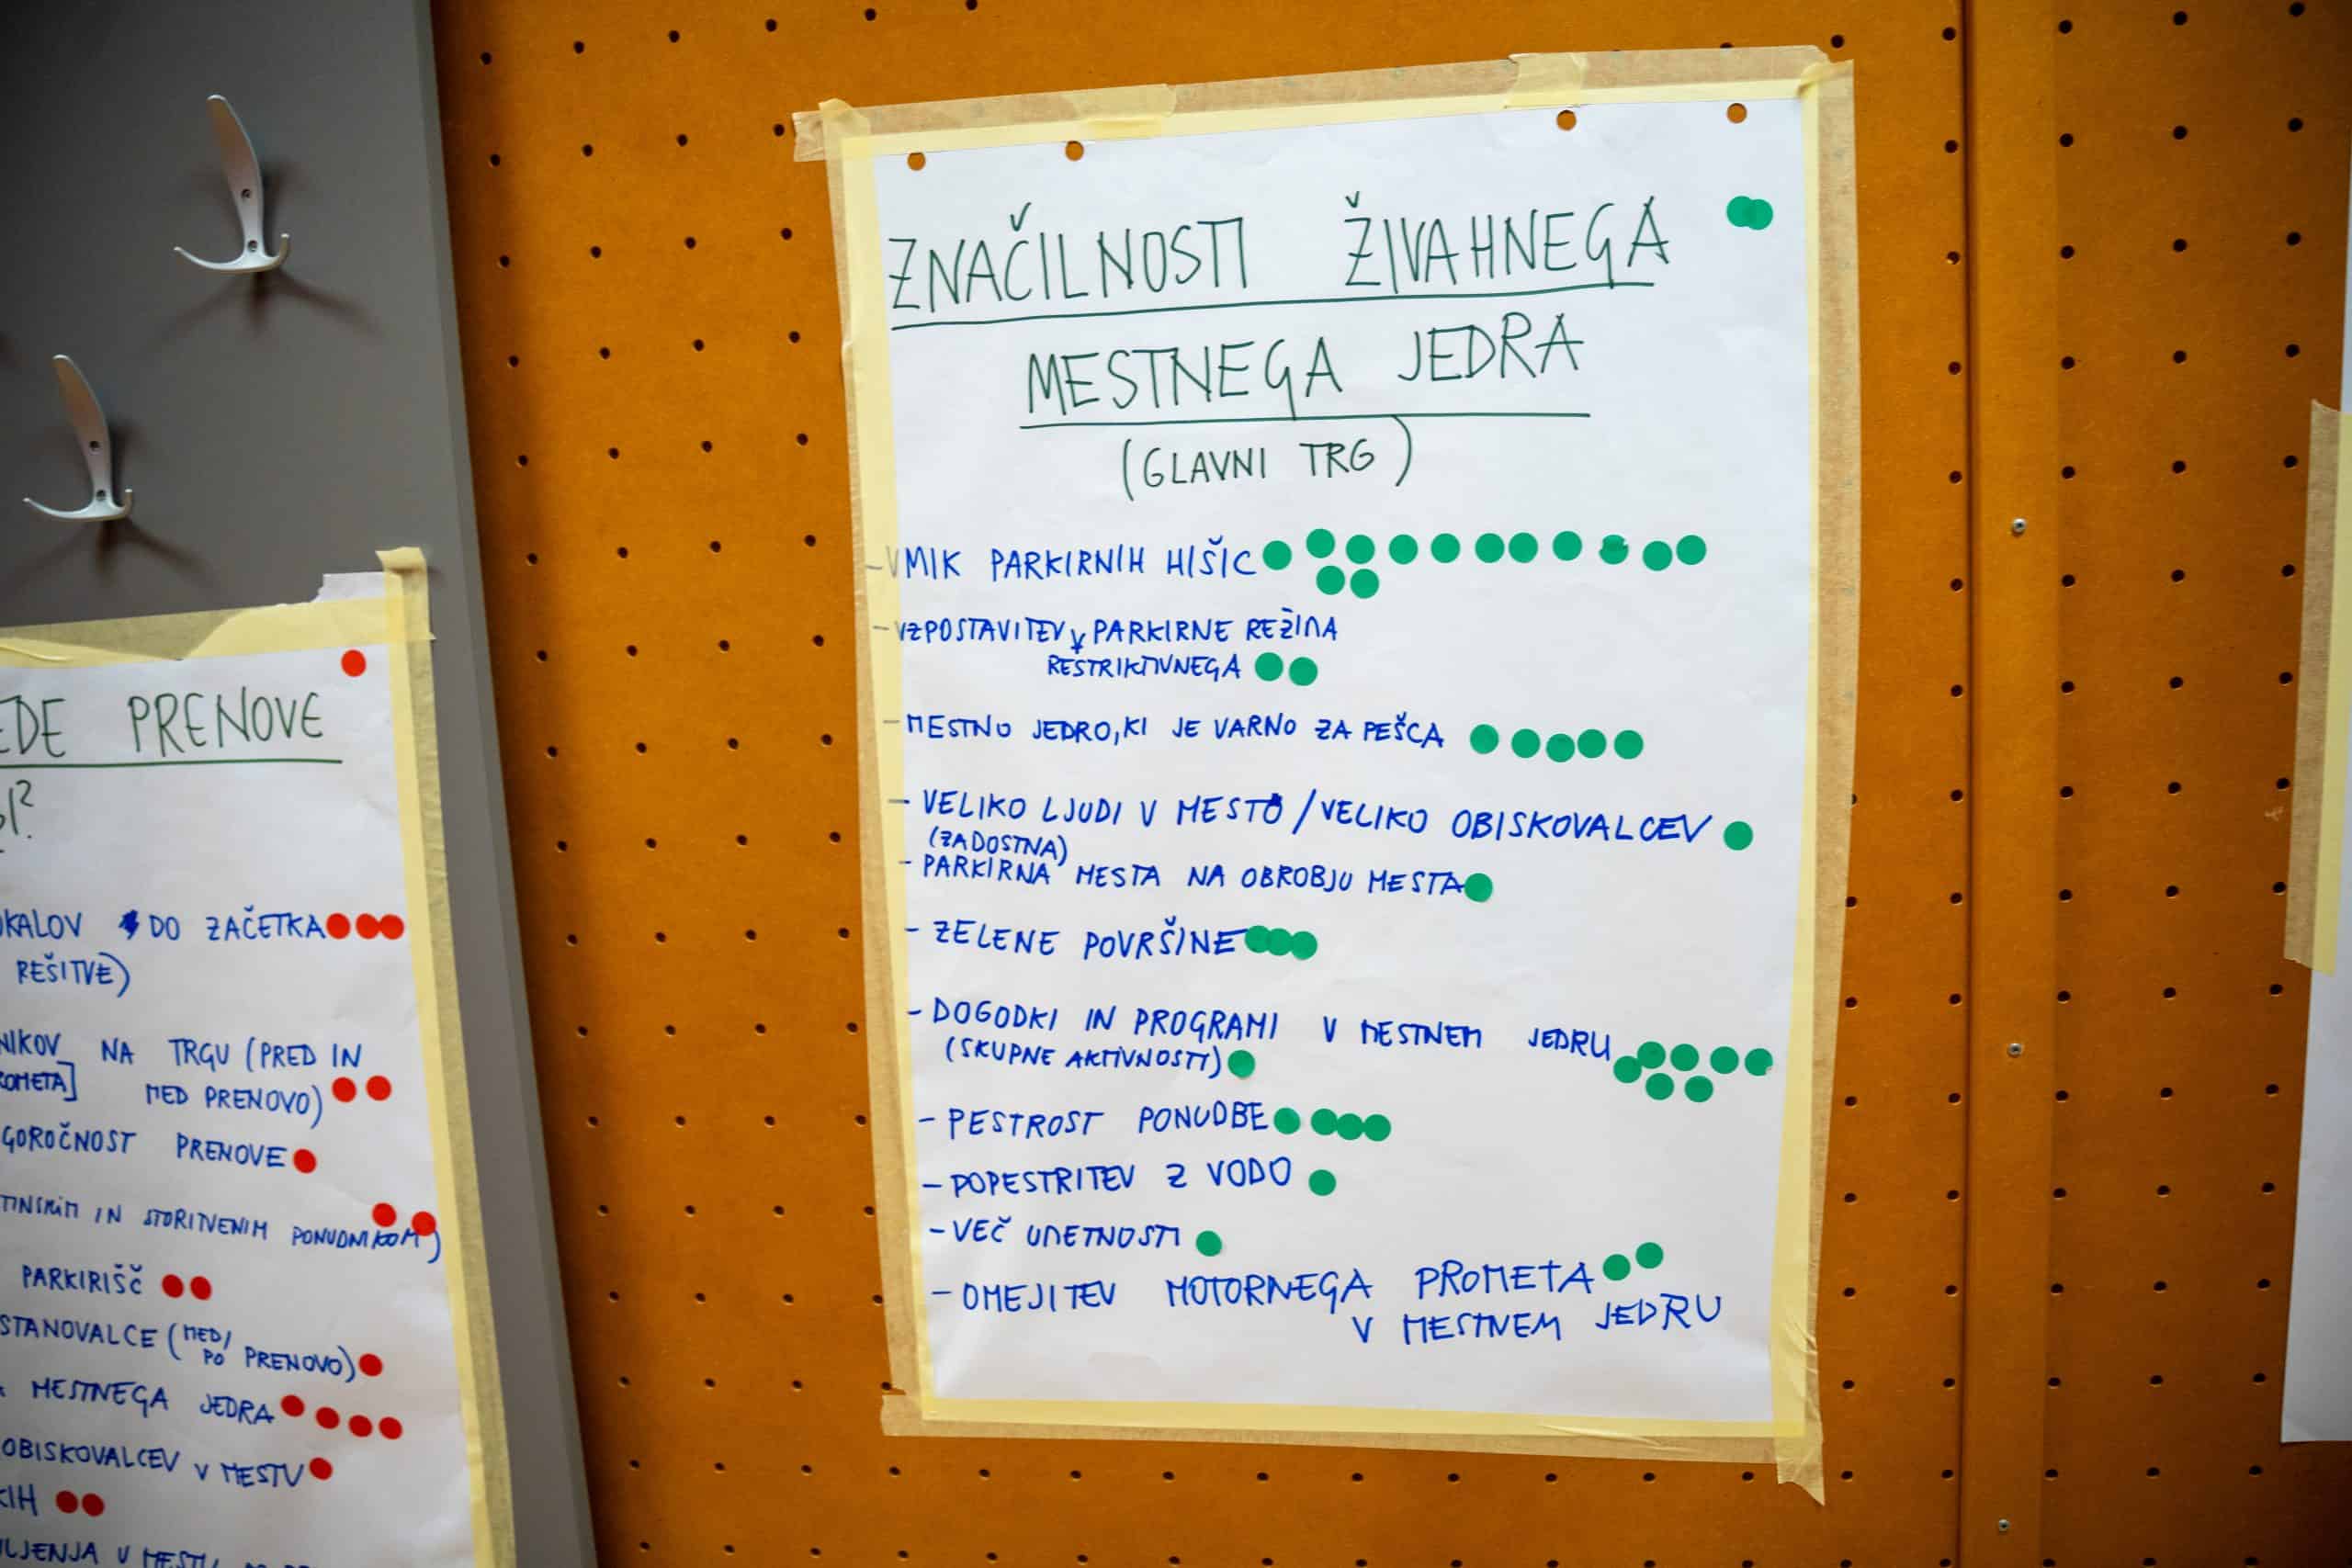 ZNAČILNOSTI ŽIVAHNEGA
MESTNEGA JEDRA
(GLAVNI TRG)
- UMIK PARKIRNIH HIŠIC
- VZPOSTAVITEV PARKIRNE REŽIMA
RESTRIKTIVNEGA
- MESTNO JEDRO, KI JE VARNO ZA PEŠCA
- VELIKO LJUDI V MESTO / VELIKO OBISKOVALCEV
(ZADOSTNA)
- PARKIRNA MESTA NA OBROBJU MESTA
- ZELENE POVRŠINE
- DOGODKI IN PROGRAMI V MESTNEM JEDRU
(SKUPNE AKTIVNOSTI)
- PESTROST PONUDBE
- POPESTRITEV Z VODO
- VEČ UMETNOSTI
- OMEJITEV MOTORNEGA PROMETA
V MESTNEM JEDRU
EDE PRENOVE
OKALOV DO ZAČETKA
REŠITVE)
NIKOV NA TRGU (PRED IN
ROMETA] MED PRENOVO)
GOROČNOST PRENOVE
IN STORITVENIM PONUDNIKOM)
PARKIRIŠČ
STANOVALCE (MED/
PO PRENOVO)
MESTNEGA JEDRA
OBISKOVALCEV V MESTU
KIH
LJENJA V MESTU